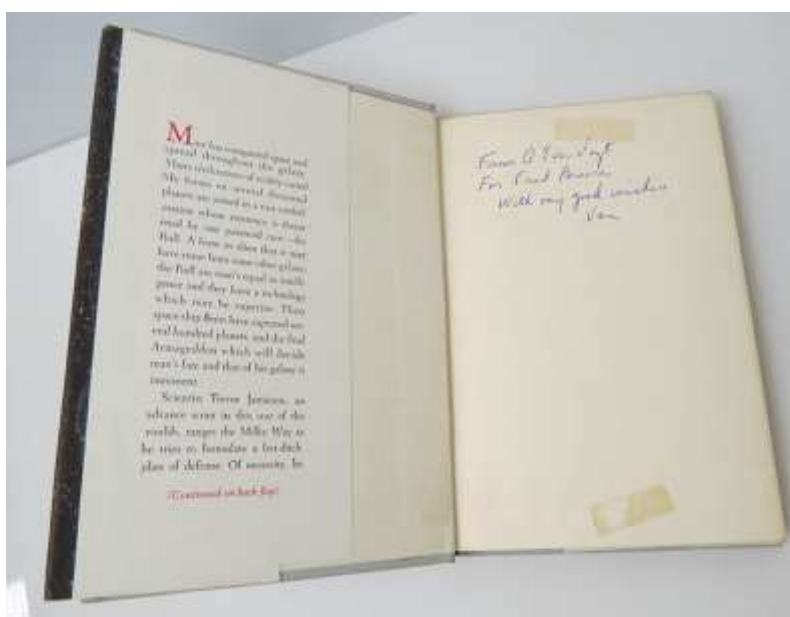 Man has conquered space and
spread throughout this galaxy.
Many civilizations of widely varied
life forms on several thousand
planets are joined in a vast confed-
eration whose existence is threat-
ened by one paranoid race—the
Rull. A form so alien that it may
have come from some other galaxy,
the Rull are man's equal in intelli-
gence and they have a technology
which may be superior. Their
space-ship fleets have captured sev-
eral hundred planets, and the final
Armageddon which will decide
man's fate and that of his galaxy is
imminent.
Scientist Trevor Jamieson, an
advance scout in this war of the
worlds, ranges the Milky Way as
he tries to formulate a last-ditch
plan of defense. Of necessity, he
(Continued on back flap)
From A Van Vogt
For Fred
With my good wishes
Van